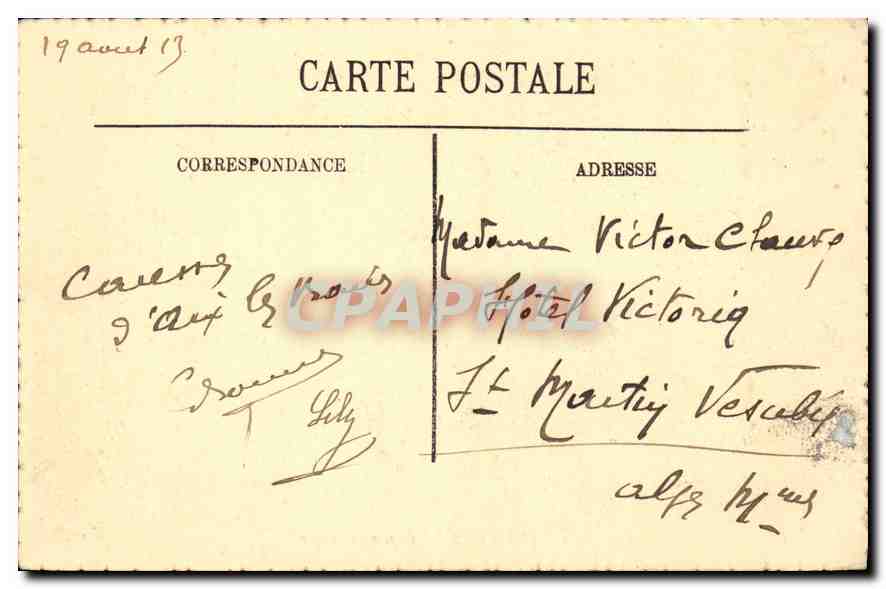 19 aout 13
CARTE POSTALE
CORRESPONDANCE
ADRESSE
d'aix les
Lily
Madame Victor
Hôtel Victoria
St Martin Vesubie
alpes Mmes
CPAPHIL